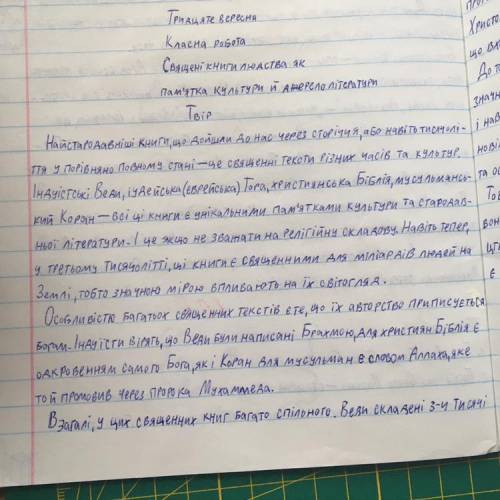 Тридцяте вересня
Класна робота
Священі книги людства як
пам'ятка культури й джерело літератури
Твір
Найстародавніші книги, що дойшли до нас через сторіччя, або навіть тисячолі-
ття у порівняно повному стані — це священні тексти різних часів та культур.
Індуїстські Веди, іудейська (єврейська) Тора, християнська Біблія, мусульмансь-
кий Коран — всі ці книги є унікальними пам'ятками культури та стародав-
ньої літератури. І це якщо не зважати на релігійну складову. Навіть тепер,
у третьому тисячолітті, ці книги є священними для міліардів людей на
Землі, тобто значною мірою впливають на їх світогляд.
Особливістю багатьох священних текстів є те, що їх авторство приписується
богам. Індуїсти вірять, що Веди були написані Брахмою, для християн Біблія є
одкровенням самого Бога, як і Коран для мусульман є словом Аллаха, яке
той промовив через пророка Мухаммеда.
Взагалі, у цих священних книг багато спільного. Веди складені 3-и тисячі
Христо
що вл
До то
значн
і нав
нові
та ос
Тов
вон
є